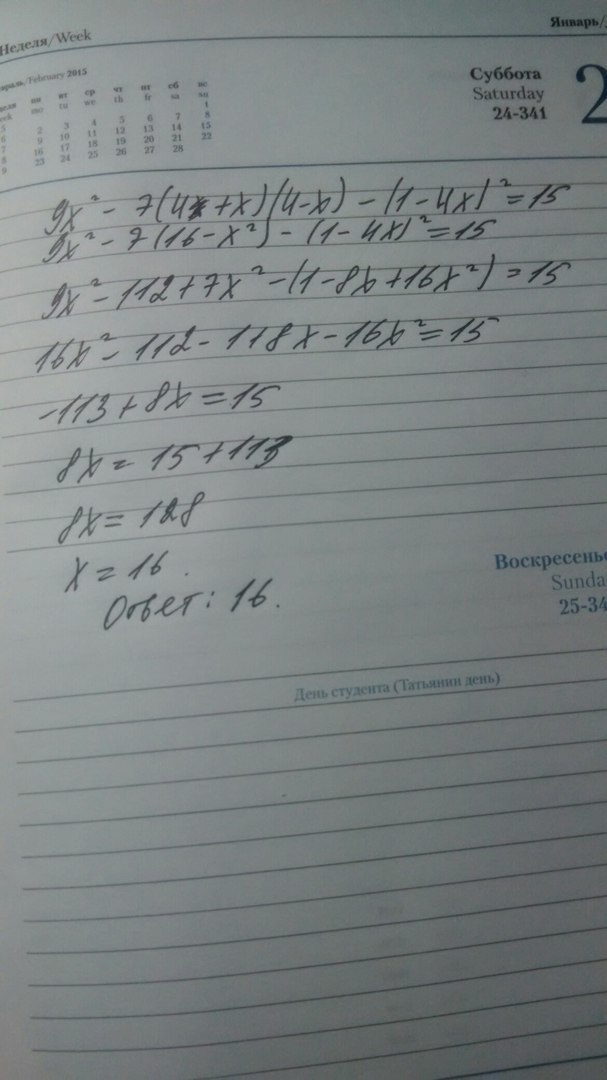 Неделя/Week
Январь/
враль/February 2015
пн вт ср чт пт сб вс
eek mo tu we th fr sa su
5 1
6 2 3 4 5 6 7 8
7 9 10 11 12 13 14 15
8 16 17 18 19 20 21 22
9 23 24 25 26 27 28
Суббота
Saturday
24-341
2
9x² - 7(4+x)(4-x) - (1-4x)² = 15
9x² - 7(16-x²) - (1-4x)² = 15
9x² - 112 + 7x² - (1-8x+16x²) = 15
16x² - 112 - 118x - 16x² = 15
-113 + 8x = 15
8x = 15 + 113
8x = 128
x = 16.
Ответ: 16.
Воскресенье
Sunda
25-34
День студента (Татьянин день)